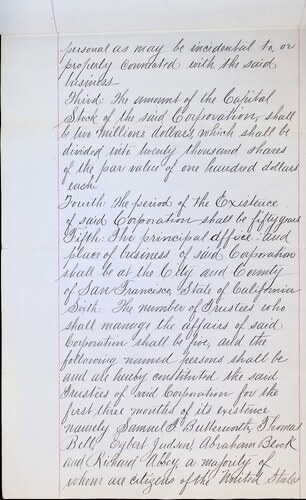 personal as may be incidental to, or
properly connected with the said
business
Third: The amount of the Capital
Stock of the said Corporation, shall
be two millions dollars, which shall be
divided into twenty thousand shares
of the par value of one hundred dollars
each
Fourth: The period of the Existence
of said Corporation shall be fifty years
Fifth: The principal office and
place of business of said Corporation
shall be at the City and County
of San Francisco, State of California
Sixth: The number of Trustees who
shall manage the affairs of said
Corporation shall be five, and the
following named persons shall be
and are hereby constituted the said
Trustees of said Corporation for the
first three months of its existence
namely Samuel F. Butterworth, Thomas
Bell, Egbert Judson, Abraham Block
and Richard Abbey, a majority of
whom are citizens of the United States